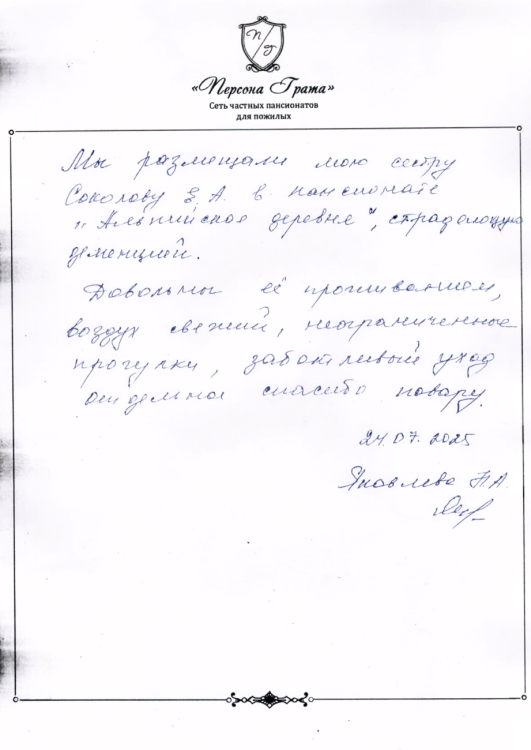 П Г
«Персона Грата»
Сеть частных пансионатов
для пожилых
Мы размещали мою сестру
Соколову Е. А. в пансионате
"Альпийская деревня", страдающую
деменцией.
Довольны её проживанием,
воздух свежий, неограниченные
прогулки, заботливый уход
отдельное спасибо повару.
24.07.2025
Яковлева Н.А.